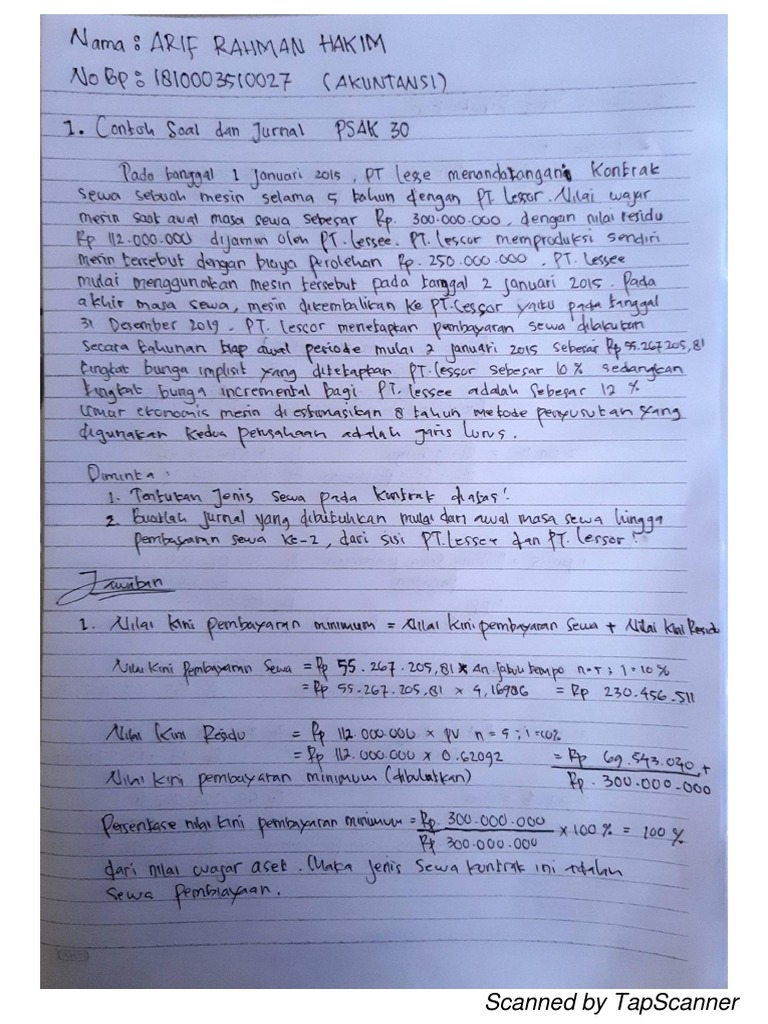 Nama : ARIF RAHMAN HAKIM
No Bp : 1810003510027 (AKUNTANSI)
1. Contoh Soal dan Jurnal PSAK 30
Pada tanggal 1 Januari 2015, PT lesse menandatangani Kontrak
sewa sebuah mesin selama 5 tahun dengan PT. Lessor. Nilai wajar
mesin saat awal masa sewa sebesar Rp. 300.000.000, dengan nilai residu
Rp 112.000.000 dijamin oleh PT. lessee. PT. lessor memproduksi sendiri
mesin tersebut dengan biaya perolehan Rp. 250.000.000. PT. Lessee
mulai menggunakan mesin tersebut pada tanggal 2 januari 2015. Pada
akhir masa sewa, mesin dikembalikan ke PT. Lessor yaitu pada tanggal
31 Desember 2019. PT. lessor menetapkan pembayaran sewa dilakukan
secara tahunan tiap awal periode mulai 2 januari 2015 sebesar Rp 55.267.205,81
tingkat bunga implisit yang ditetapkan PT. lessor sebesar 10% sedangkan
tingkat bunga incremental bagi PT. lessee adalah sebesar 12 %
Umur ekonomis mesin di estimasikan 8 tahun metode penyusutan yang
digunakan kedua perusahaan adalah garis lurus.
Diminta :
1. Tentukan Jenis Sewa pada kontrak diatas!
2. Buatlah jurnal yang dibutuhkan mulai dari awal masa sewa hingga
pembayaran sewa ke-2, dari sisi PT. Lessee dan PT. lessor!
Jawaban
1. Nilai kini pembayaran minimum = Nilai kini pembayaran Sewa + Nilai Kini Residu
Nilai kini pembayaran Sewa = Rp 55.267.205,81 x An. jatuh tempo n=5 ; i=10%
= Rp 55.267.205,81 x 4,16986 = Rp 230.456.511
Nilai Kini Residu = Rp 112.000.000 x PV n=5 ; i=10%
= Rp 112.000.000 x 0.62092 = Rp 69.543.040 +
Nilai kini pembayaran minimum (dibulatkan) Rp. 300.000.000
Persentase nilai kini pembayaran minimum = Rp. 300.000.000 x 100% = 100%
Rp 300.000.000
dari nilai wajar aset. Maka jenis sewa kontrak ini adalah
sewa pembiayaan.
Scanned by TapScanner